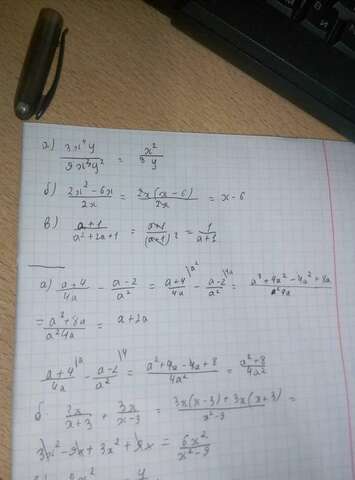 а) 3x⁴y / 9x³y² = x² / 8 y
б) 2x² - 6x / 2x = 2x(x - 6) / 2x = x - 6
в) a + 1 / a² + 2a + 1 = a+1 / (a+1)² = 1 / a+1
а) a + 4 / 4a - a - 2 / a² = a+4 / 4a - a - 2 / a² = a² + 4a² - 4a² + 8a / a² 4a
= a³ + 8a / a² 4a = a + 2a
a + 4 / 4a - a - 2 / a² = a² + 4a - 4a + 8 / 4a² = a² + 8 / 4a²
б 3x / x+3 + 3x / x-3 = 3x(x-3) + 3x(x+3) / x² - 9 =
3x² - 9x + 3x² + 9x = 6x² / x² - 9